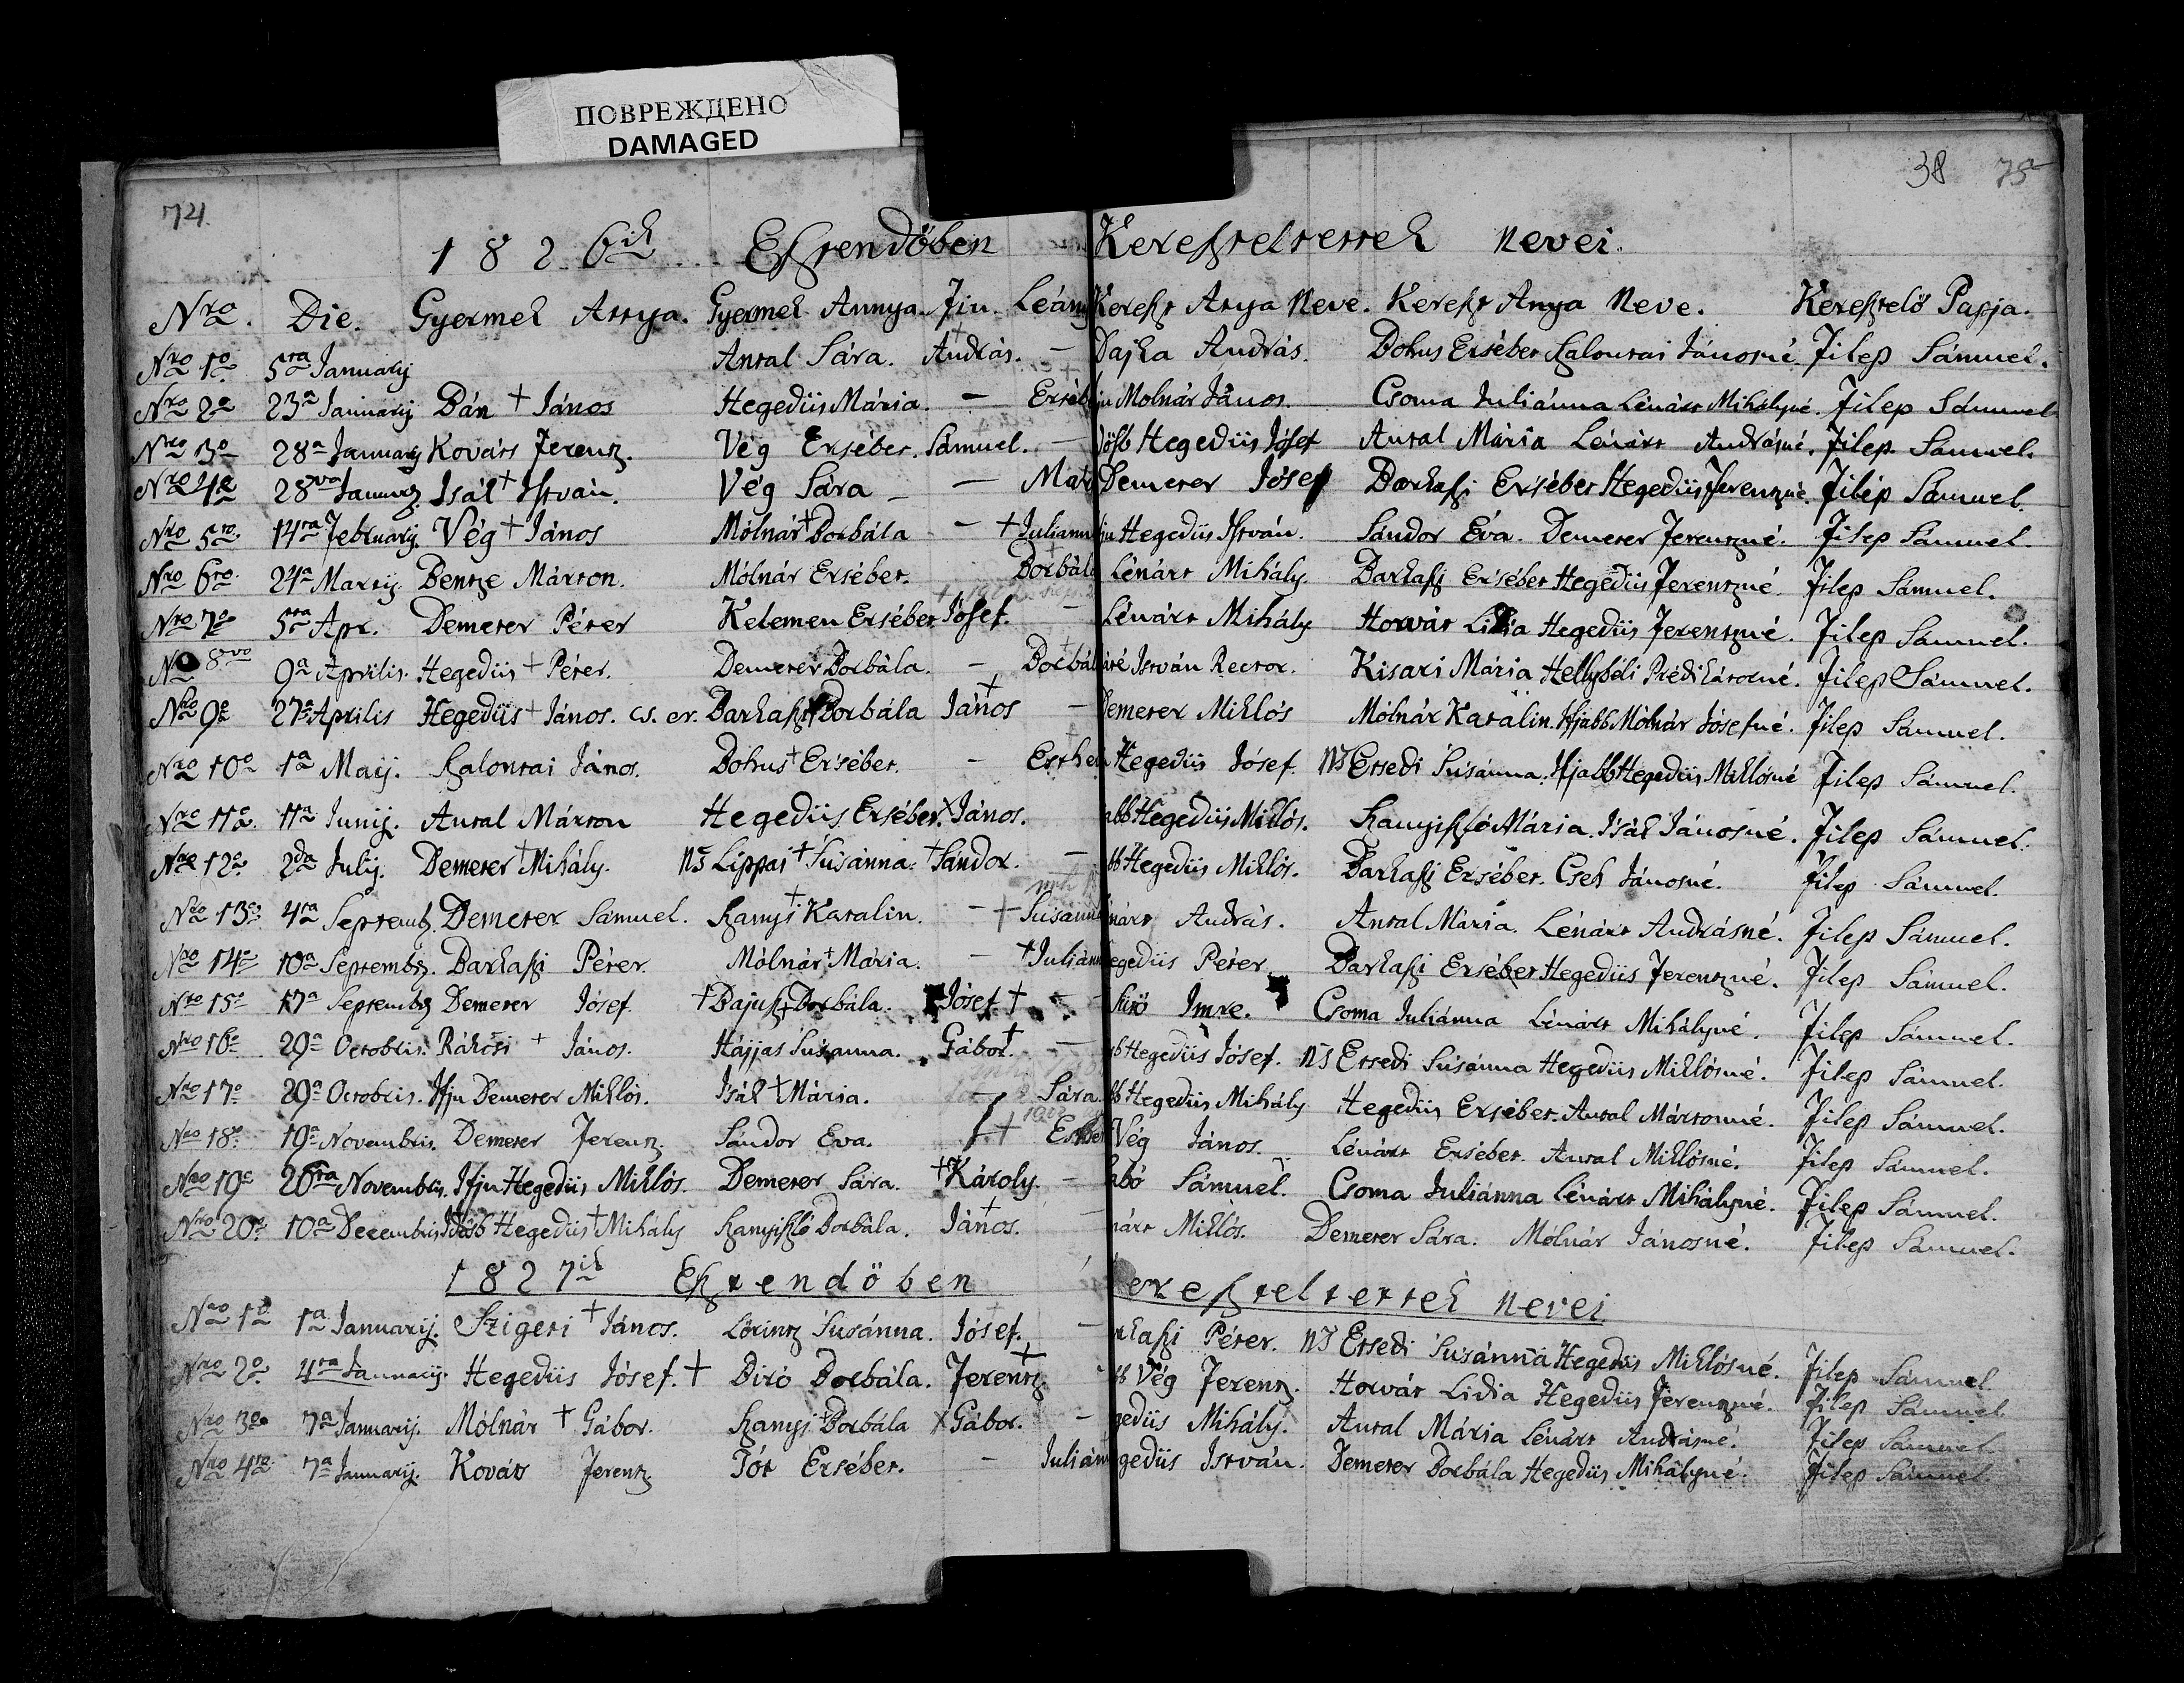 ПОВРЕЖДЕНО
DAMAGED
74.
38 75
1826ik Esztendőben Kereszteltettek nevei.
Nro. Die. Gyermek Attya. Gyermek Annya. Fiu. Leány Kereszt Atya Neve. Kereszt Anya Neve. Keresztelő Papja.
Nro 1o 5ta January Antal Sára. András. — Dajka András. Bohus Ersébet Szalontai Jánosné. Filep Sámuel.
Nro 2o 23a January Bán + János Hegedüs Mária. — Erséb ju Molnár János. Csoma Juliánna Lénárt Mihályné. Filep Sámuel
Nro 3o 28a January Kováts Ferentz. Vég Ersébet. Sámuel. — Hegedüs Jósef Antal Mária Lénárt Andrásné. Filep Sámuel.
Nro 4o 28va January Isák + István. Vég Sára — — Mar Demeter Jósef Barkaszi Ersébet Hegedüs Ferentzné. Filep Sámuel.
Nro 5to 14ta February. Vég + János Mólnár + Borbála — + Juliann ju Hegedüs István. Sándor Éva. Demeter Ferentzné. Filep Sámuel.
Nro 6to 24a Martij. Bentze Márton. Mólnár Ersébet. Borbála Lénárt Mihály. Barkaszi Ersébet Hegedüs Ferentzné. Filep Sámuel.
Nro 7o 5ta Apr. Demeter Péter Kelemen Ersébet Jósef. — Lénárt Mihály Horvát Lidia Hegedüs Ferentzné. Filep Sámuel.
No 8vo 9a Aprilis. Hegedüs + Péter. Demeter Borbála. — Borbál István Rector. Kisari Mária Hellybéli Prédikátorné. Filep Sámuel.
Nro 9o 27a Aprilis Hegedüs + János. cs. er. Barkaszi + Borbála János + — Demeter Miklós Mólnár Katalin. Ifjabb Mólnár Jósefné. Filep Sámuel.
Nro 10o 1a Maij. Szalontai János. Bohus + Ersébet. — Eszther Hegedüs Jósef. NS Etsedi Susánna. Ifjabb Hegedüs Miklósné Filep Sámuel.
Nro 11o 11a Junij. Antal Márton Hegedüs Ersébet. X János. abb Hegedüs Miklós. Szanyiszló Mária. Isák Jánosné. Filep Sámuel.
Nro 12o 2da Julij. Demeter + Mihály. NS Lippai + Susánna. + Sándor. — bb Hegedüs Miklós. Barkaszi Ersébet. Cseh Jánosné. Filep Sámuel.
Nro 13o 4ta Septemb. Demeter Sámuel. Szanyi + Katalin. — + Susann nárt András. Antal Mária. Lénárt Andrásné. Filep Sámuel.
Nro 14o 10a Septembr. Barkaszi Péter. Mólnár + Mária. — + Juliánn egedüs Péter. Barkaszi Ersébet Hegedüs Ferentzné. Filep Sámuel.
Nro 15o 17a Septembr Demeter Jósef. + Bajusz + Borbála. Jósef. + — Imre. Csoma Juliánna Lénárt Mihályné. Filep Sámuel.
Nro 16o 29a Octobris. Rákosi + János. Hájjas Susanna. Gábor. + — bb Hegedüs Jósef. NS Etsedi Susánna Hegedüs Miklósné. Filep Sámuel.
Nro 17o 29a Octobris. Ifju Demeter Miklós. Isák + Mária. Sára. bb Hegedüs Mihály Hegedüs Ersébet. Antal Mártonné. Filep Sámuel.
Nro 18o 19a Novembris. Demeter Ferentz. Sándor Eva. + Esther Vég János. Lénárt Ersébet. Antal Miklósné. Filep Sámuel.
Nro 19o 26ta Novembris. Ifju Hegedüs Miklós. Demeter Sára. + Károly. — abó Sámuel. Csoma Juliánna Lénárt Mihályné. Filep Sámuel.
Nro 20o 10a Decembris Idősb Hegedüs + Mihály Szanyiszló Borbála. János. + — nárt Miklós. Demeter Sára. Mólnár Jánosné. Filep Sámuel.
1827ik Esztendöben ereszteltettek nevei
Nro 1o 1a Januarij. Szigeti + János. Lörintz Susánna. Jósef. — rkaszi Péter. NS Etsedi Susánna Hegedüs Miklósné. Filep Sámuel
Nro 2o 4ta Januarij. Hegedüs Jósef. + Biró Borbála. Ferentz. + bb Vég Ferentz. Horvát Lidia Hegedüs Ferentzné. Filep Sámuel.
Nro 3o 7a Januarij. Mólnár + Gábor. Szanyi + Borbála X Gábor. — gedüs Mihály. Antal Mária Lénárt Andrásné. Filep Sámuel
Nro 4to 7a Januarij. Kováts Ferentz Tót Ersébet. — Julián gedüs István. Demeter Borbála Hegedüs Mihályné. Filep Sámuel